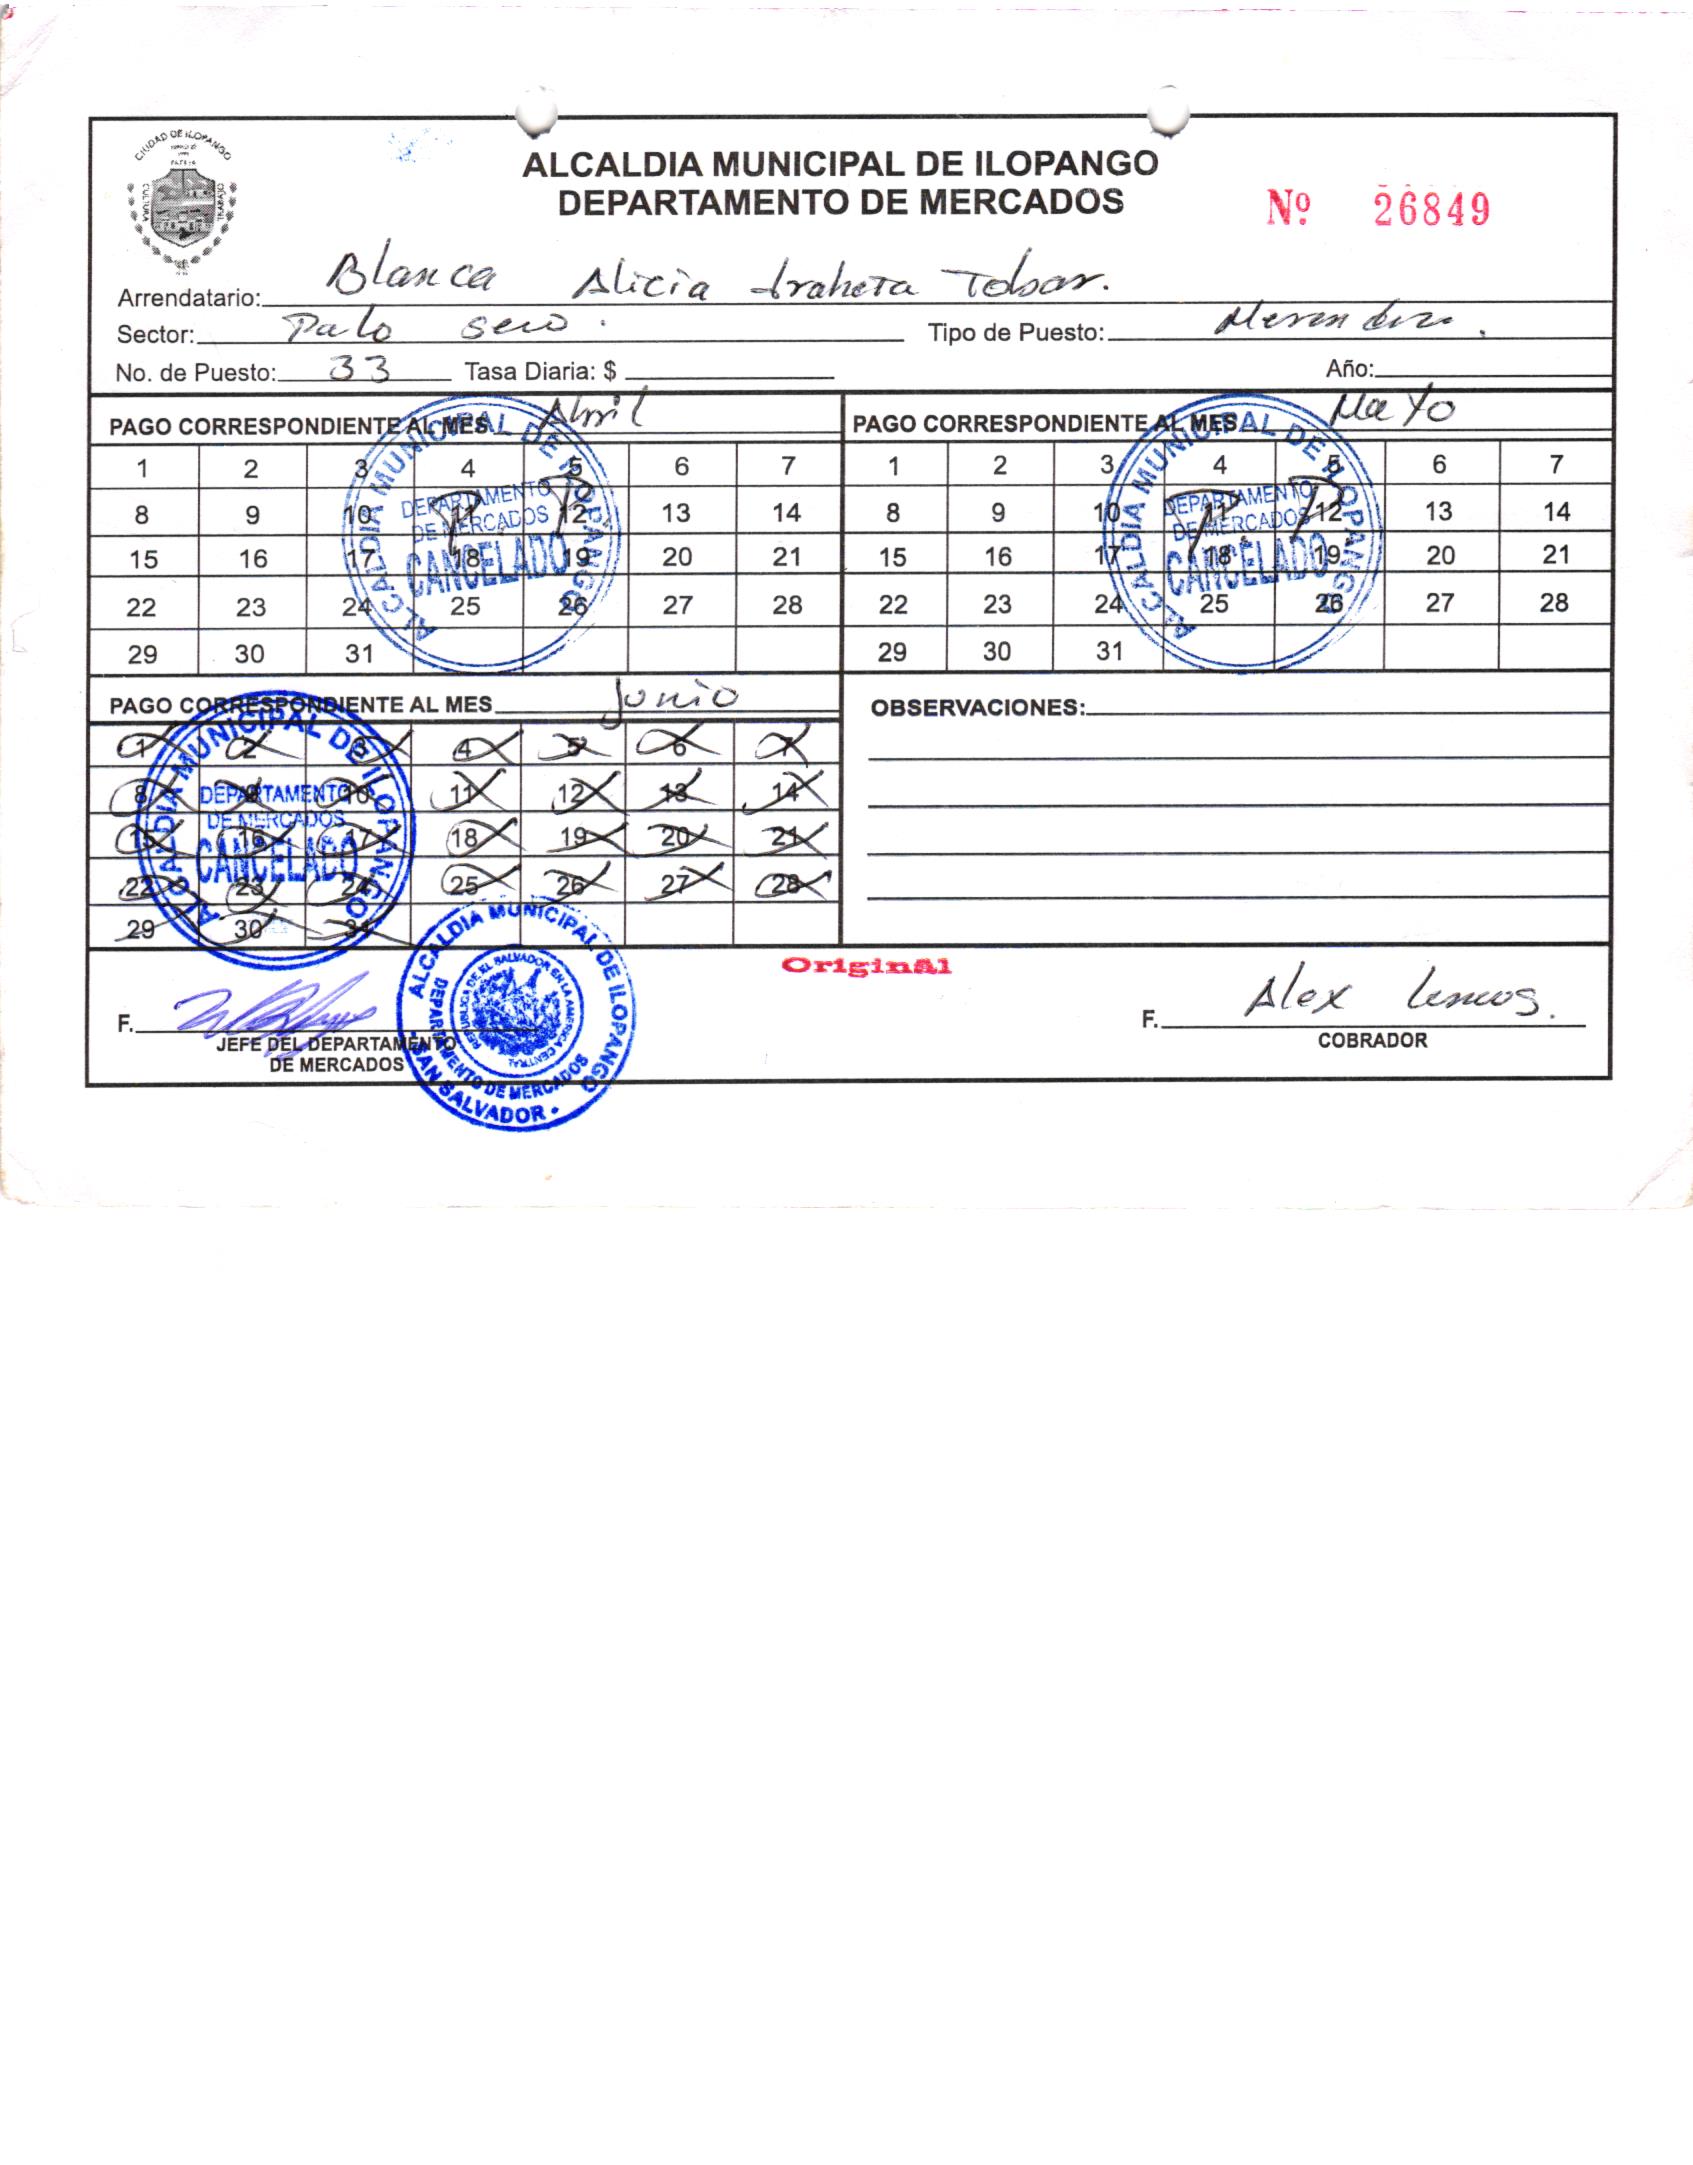 CIUDAD DE ILOPANGO
CULTURA
TRABAJO
ALCALDIA MUNICIPAL DE ILOPANGO
DEPARTAMENTO DE MERCADOS
Nº 26849
Arrendatario: Blanca Alicia Iraheta Tobar.
Sector: Palo seco. Tipo de Puesto:
No. de Puesto: 33 Tasa Diaria: $ Año:
PAGO CORRESPONDIENTE AL MES Abril
1 2 3 4 5 6 7
8 9 10 11 12 13 14
15 16 17 18 19 20 21
22 23 24 25 26 27 28
29 30 31
ALCALDIA MUNICIPAL DE ILOPANGO
DEPARTAMENTO
DE MERCADOS
CANCELADO
PAGO CORRESPONDIENTE AL MES Mayo
1 2 3 4 5 6 7
8 9 10 11 12 13 14
15 16 17 18 19 20 21
22 23 24 25 26 27 28
29 30 31
ALCALDIA MUNICIPAL DE ILOPANGO
DEPARTAMENTO
DE MERCADOS
CANCELADO
PAGO CORRESPONDIENTE AL MES Junio
1 2 3 4 5 6 7
8 9 10 11 12 13 14
15 16 17 18 19 20 21
22 23 24 25 26 27 28
29 30 31
ALCALDIA MUNICIPAL DE ILOPANGO
DEPARTAMENTO
DE MERCADOS
CANCELADO
OBSERVACIONES:
OriginAl
F.
JEFE DEL DEPARTAMENTO
DE MERCADOS
ALCALDIA MUNICIPAL DE ILOPANGO
DEPARTAMENTO DE MERCADOS
REPUBLICA DE EL SALVADOR EN LA AMERICA CENTRAL
SAN SALVADOR -
F. Alex Lemus.
COBRADOR